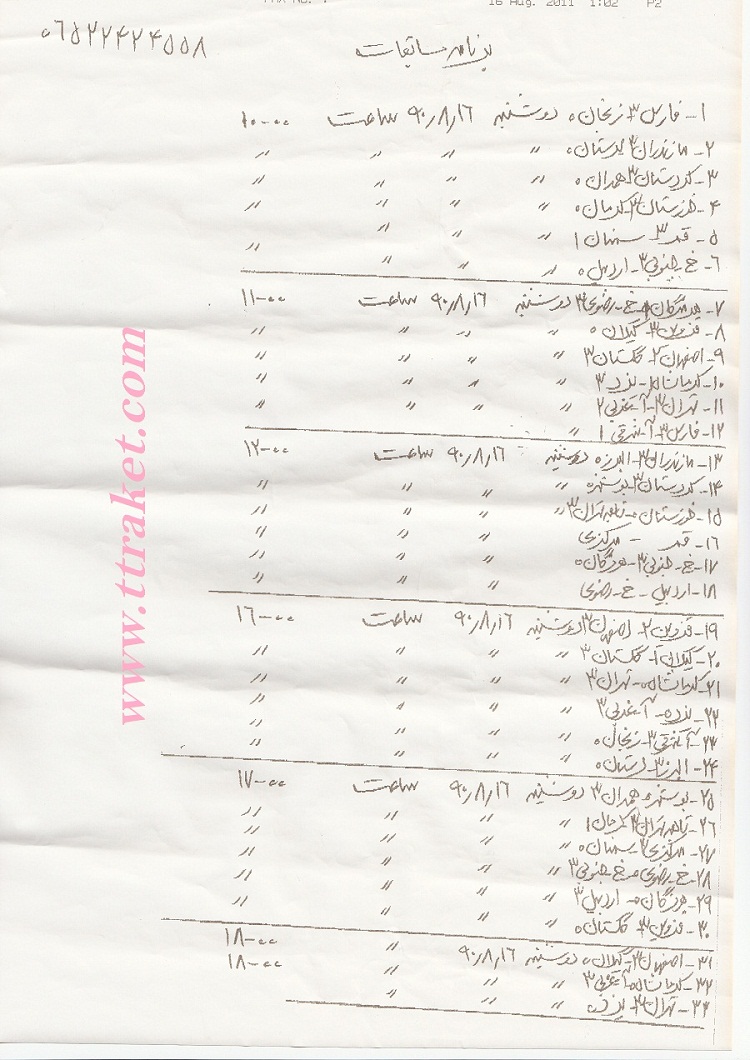 16 Aug. 2011 1:02 P2
۰۶۵۲۲۴۲۴۵۵۸
برنامه مسابقات
۱- فارس ۳ زنجان ۰ دوشنبه ۹۰/۸/۱۶ ساعت ۱۰-۰۰
۲- مازندران ۳ لرستان ۰ " " " "
۳- کردستان ۳ همدان ۰ " " " "
۴- خوزستان ۳ کرمان ۰ " " " "
۵- قم ۳ سمنان ۱ " " "
۶- خ- جنوبی ۳- اردبیل ۰ " " " "
۷- هرمزگان خ- رضوی ۳ دوشنبه ۹۰/۸/۱۶ ساعت ۱۱-۰۰
۸- قزوین ۳ گیلان ۰ " " " "
۹- اصفهان ۲- گلستان ۳ " " " "
۱۰- کرمانشاه - یزد ۳ " " " "
۱۱- تهران ۳- آ-غربی ۲ " " " "
۱۲- فارس ۳ آ-شرقی ۱ "
۱۳- مازندران ۳- البرز ۰ دوشنبه ۹۰/۸/۱۶ ساعت ۱۲-۰۰
۱۴- کردستان ۳ بوشهر ۰ " " " "
۱۵- خوزستان ۰- تهران ۳ " " " "
۱۶- قم - مرکزی " " "
۱۷- خ- جنوبی ۳- هرمزگان ۰ " " "
۱۸- اردبیل - خ- رضوی " " "
۱۹- قزوین ۲- اصفهان ۳ دوشنبه ۹۰/۸/۱۶ ساعت ۱۶-۰۰
۲۰- گیلان - گلستان ۳ " " " "
۲۱- کرمانشاه ۰- تهران ۳ " " " "
۲۲- یزد ۰- آ-غربی ۳ " " " "
۲۳- آ-شرقی ۳- زنجان ۰ " " " "
۲۴- البرز ۳- لرستان ۰ " " " "
۲۵- بوشهر ۰ همدان ۳ دوشنبه ۹۰/۸/۱۶ ساعت ۱۷-۰۰
۲۶- تهران ۳ کرمان ۱ " " " "
۲۷- مرکزی ۳ سمنان ۰ " " " "
۲۸- خ- رضوی ۰- خ- جنوبی ۳ " " " "
۲۹- هرمزگان ۰- اردبیل ۳ " " " "
۳۰- قزوین ۳- گلستان ۰ " " "
۳۱- اصفهان ۳- گیلان ۰ دوشنبه ۹۰/۸/۱۶ " ۱۸-۰۰
۱۸-۰۰
۳۲- کرمانشاه ۰ آ-غربی ۳ " " "
۳۳- تهران ۳- یزد ۰ " " "
www.ttraket.com